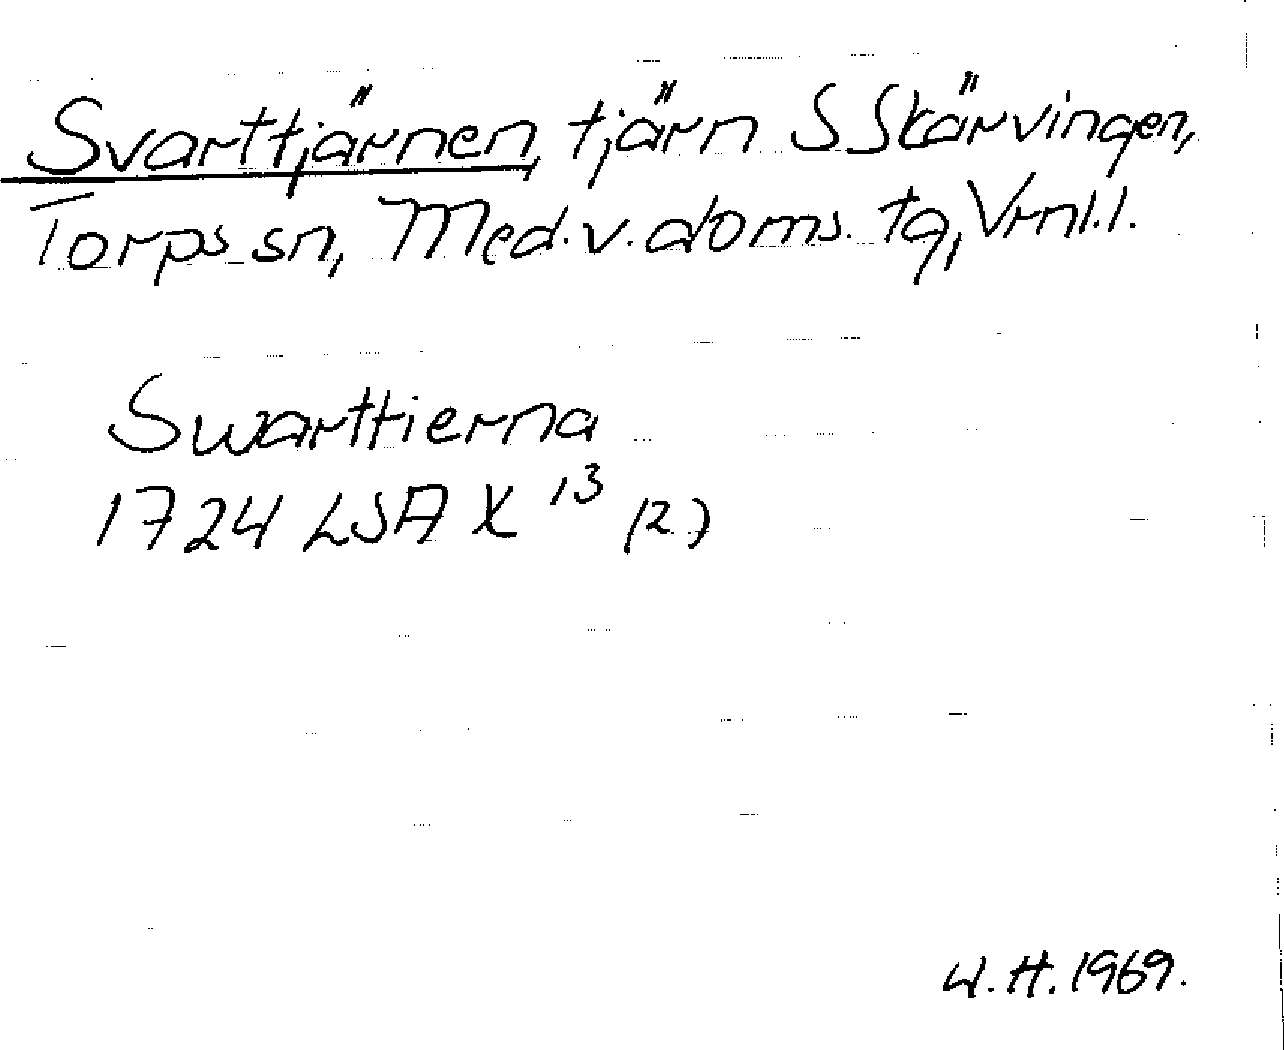 Svarttjärnen, tjärn S Skärvingen,
Torps sn, Med.v.doms.tg, Vrnl.l.
Swarttierna
1724 LSA X 13 (2)
W.H.1969.